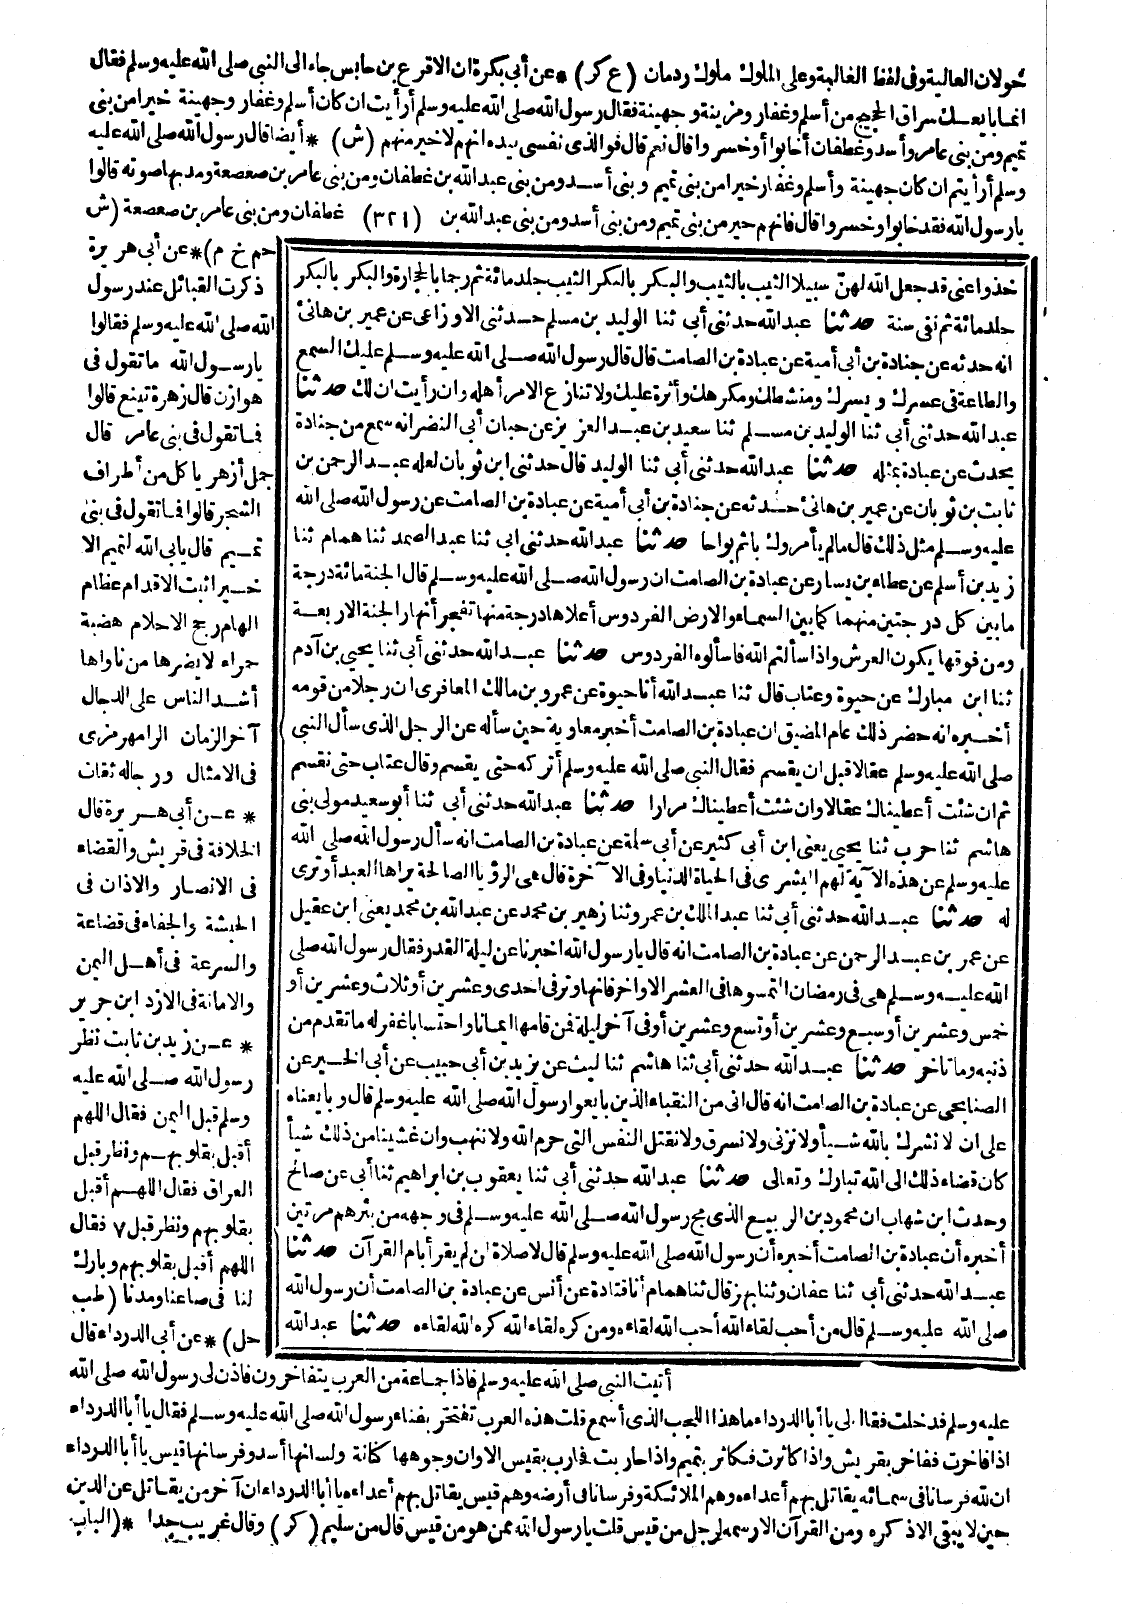 خولان العالية وفى لفظ الغالبة وعلى الملوك ملوك ردمان (ع كر) * عن أبى بكرة ان الاقرع بن حابس جاء الى النبى صلى الله عليه وسلم فقال
انما بايعك سراق الحجيج من أسلم وغفار ومزينة وجهينة فقال رسول الله صلى الله عليه وسلم أرأيت ان كان أسلم وغفار وجهينة خيرا من بنى
تميم ومن بنى عامر وأسد وغطفان أخابوا وخسروا قال نعم قال فوالذى نفسى بيده انهم لاخير منهم (ش) * أيضا قال رسول الله صلى الله عليه
وسلم أرأيتم ان كان جهينة وأسلم وغفار خيرا من بنى تميم وبنى أسد ومن بنى عبد الله بن غطفان ومن بنى عامر بن صعصعة ومد بها صوته قالوا
يا رسول الله فقد خابوا وخسروا قال فانهم خير من بنى تميم ومن بنى أسد ومن بنى عبد الله بن (٣٢١) غطفان ومن بنى عامر بن صعصعة (ش
حم خ م) * عن أبى هريرة
ذكرت القبائل عند رسول
الله صلى الله عليه وسلم فقالوا
يا رسول الله ما تقول فى
هوازن قال زهرة تينع قالوا
فما تقول فى بنى عامر قال
جمل أزهر يأكل من أطراف
الشجر قالوا فما تقول فى بنى
تميم قال يأبى الله لتميم الا
خيرا ثبت الاقدام عظام
الهام رجح الاحلام هضبة
حمراء لا يضرها من ناواها
أشد الناس على الدجال
آخر الزمان الرامهرمزى
فى الامثال ورجاله ثقات
* عن أبى هريرة قال
الخلافة فى قريش والقضاء
فى الانصار والاذان فى
الحبشة والجفاء فى قضاعة
والسرعة فى أهل اليمن
والامانة فى الازد ابن جرير
* عن زيد بن ثابت نظر
رسول الله صلى الله عليه
وسلم قبل اليمن فقال اللهم
أقبل بقلوبهم ونظر قبل
العراق فقال اللهم أقبل
بقلوبهم ونظر قبل ٧ فقال
اللهم أقبل بقلوبهم وبارك
لنا فى صاعنا ومدنا (طب
حل) * عن أبى الدرداء قال
خذوا عنى قد جعل الله لهن سبيلا الثيب بالثيب والبكر بالبكر الثيب جلد مائة ثم رجما بالحجارة والبكر بالبكر
جلد مائة ثم نفى سنة حدثنا عبد الله حدثنى أبى ثنا الوليد بن مسلم حدثنى الاوزاعى عن عمير بن هانئ
انه حدثه عن جنادة بن أبى أمية عن عبادة بن الصامت قال قال رسول الله صلى الله عليه وسلم عليك السمع
والطاعة فى عسرك ويسرك ومنشطك ومكرهك وأثرة عليك ولا تنازع الامر أهله وان رأيت ان لك حدثنا
عبد الله حدثنى أبى ثنا الوليد بن مسلم ثنا سعيد بن عبد العزيز عن حبان أبى النضر انه سمع من جنادة
يحدث عن عبادة بمثله حدثنا عبد الله حدثنى أبى ثنا الوليد قال حدثنى ابن ثوبان لعله عبد الرحمن بن
ثابت بن ثوبان عن عمير بن هانئ حدثه عن جنادة بن أبى أمية عن عبادة بن الصامت عن رسول الله صلى الله
عليه وسلم مثل ذلك قال ما لم يأمروك باثم بواحا حدثنا عبد الله حدثنى ابى ثنا عبد الصمد ثنا همام ثنا
زيد بن أسلم عن عطاء بن يسار عن عبادة بن الصامت ان رسول الله صلى الله عليه وسلم قال الجنة مائة درجة
ما بين كل درجتين منهما كما بين السماء والارض الفردوس أعلاها درجة منها تفجر أنهار الجنة الاربعة
ومن فوقها يكون العرش واذا سألتم الله فاسألوه الفردوس حدثنا عبد الله حدثنى أبى ثنا يحيى بن آدم
ثنا ابن مبارك عن حيوة وعتاب قال ثنا عبد الله أنا حيوة عن عمرو بن مالك المعافرى ان رجلا من قومه
أخبره انه حضر ذلك عام المضيق ان عبادة بن الصامت أخبر معاوية حين سأله عن الرجل الذى سأل النبى
صلى الله عليه وسلم عقالا قبل ان يقسم فقال النبى صلى الله عليه وسلم أتركه حتى يقسم وقال عتاب حتى نقسم
ثم ان شئت أعطيناك عقالا وان شئت أعطيناك مرارا حدثنا عبد الله حدثنى أبى ثنا أبو سعيد مولى بنى
هاشم ثنا حرب ثنا يحيى يعنى ابن أبى كثير عن أبى سلمة عن عبادة بن الصامت انه سأل رسول الله صلى الله
عليه وسلم عن هذه الآية لهم البشرى فى الحياة الدنيا وفى الآخرة قال هى الرؤيا الصالحة يراها العبد أو ترى
له حدثنا عبد الله حدثنى أبى ثنا عبد الملك بن عمرو وثنا زهير بن محمد عن عبد الله بن محمد يعنى ابن عقيل
عن عمر بن عبد الرحمن عن عبادة بن الصامت انه قال يا رسول الله اخبرنا عن ليلة القدر فقال رسول الله صلى
الله عليه وسلم هى فى رمضان التمسوها فى العشر الاواخر فانها وتر فى احدى وعشرين أو ثلاث وعشرين أو
خمس وعشرين أو سبع وعشرين أو تسع وعشرين أو فى آخر ليلة فمن قامها ايمانا واحتسابا غفر له ما تقدم من
ذنبه وما تأخر حدثنا عبد الله حدثنى أبى ثنا هاشم ثنا ليث عن يزيد بن أبى حبيب عن أبى الخير عن
الصنابحى عن عبادة بن الصامت انه قال انى من النقباء الذين بايعوا رسول الله صلى الله عليه وسلم قال وبايعناه
على ان لا نشرك بالله شيأ ولا نزنى ولا نسرق ولا نقتل النفس التى حرم الله ولا ننهب وان غشينا من ذلك شيأ
كان قضاء ذلك الى الله تبارك وتعالى حدثنا عبد الله حدثنى أبى ثنا يعقوب بن ابراهيم ثنا أبى عن صالح
وحدث ابن شهاب ان محمود بن الربيع الذى مج رسول الله صلى الله عليه وسلم فى وجهه من بئرهم مرتين
أخبره أن عبادة بن الصامت أخبره أن رسول الله صلى الله عليه وسلم قال لا صلاة لمن لم يقرأ بام القرآن حدثنا
عبد الله حدثنى أبى ثنا عفان وثنا بهز قال ثنا همام أنا قتادة عن أنس عن عبادة بن الصامت أن رسول الله
صلى الله عليه وسلم قال من أحب لقاء الله أحب الله لقاءه ومن كره لقاء الله كره الله لقاءه حدثنا عبد الله
أتيت النبى صلى الله عليه وسلم فاذا جماعة من العرب يتفاخرون فاذن لى رسول الله صلى الله
عليه وسلم فدخلت فقال لى يا أبا الدرداء ما هذا اللجب الذى أسمع قلت هذه العرب تفتخر بفناء رسول الله صلى الله عليه وسلم فقال يا أبا الدرداء
اذا فاخرت ففاخر بقريش واذا كاثرت فكاثر بتميم واذا حاربت فحارب بقيس الا وان وجوهها كنانة ولسانها أسد وفرسانها قيس يا أبا الدرداء
ان لله فرسانا فى سمائه يقاتل بهم أعداءه وهم الملائكة وفرسانا فى أرضه وهم قيس يقاتل بهم أعداءه يا أبا الدرداء ان آخر من يقاتل عن الدين
حين لا يبقى الا ذكره ومن القرآن الا رسمه لرجل من قيس قلت يا رسول الله ممن هو من قيس قال من سليم (كر) وقال غريب جدا * (الباب